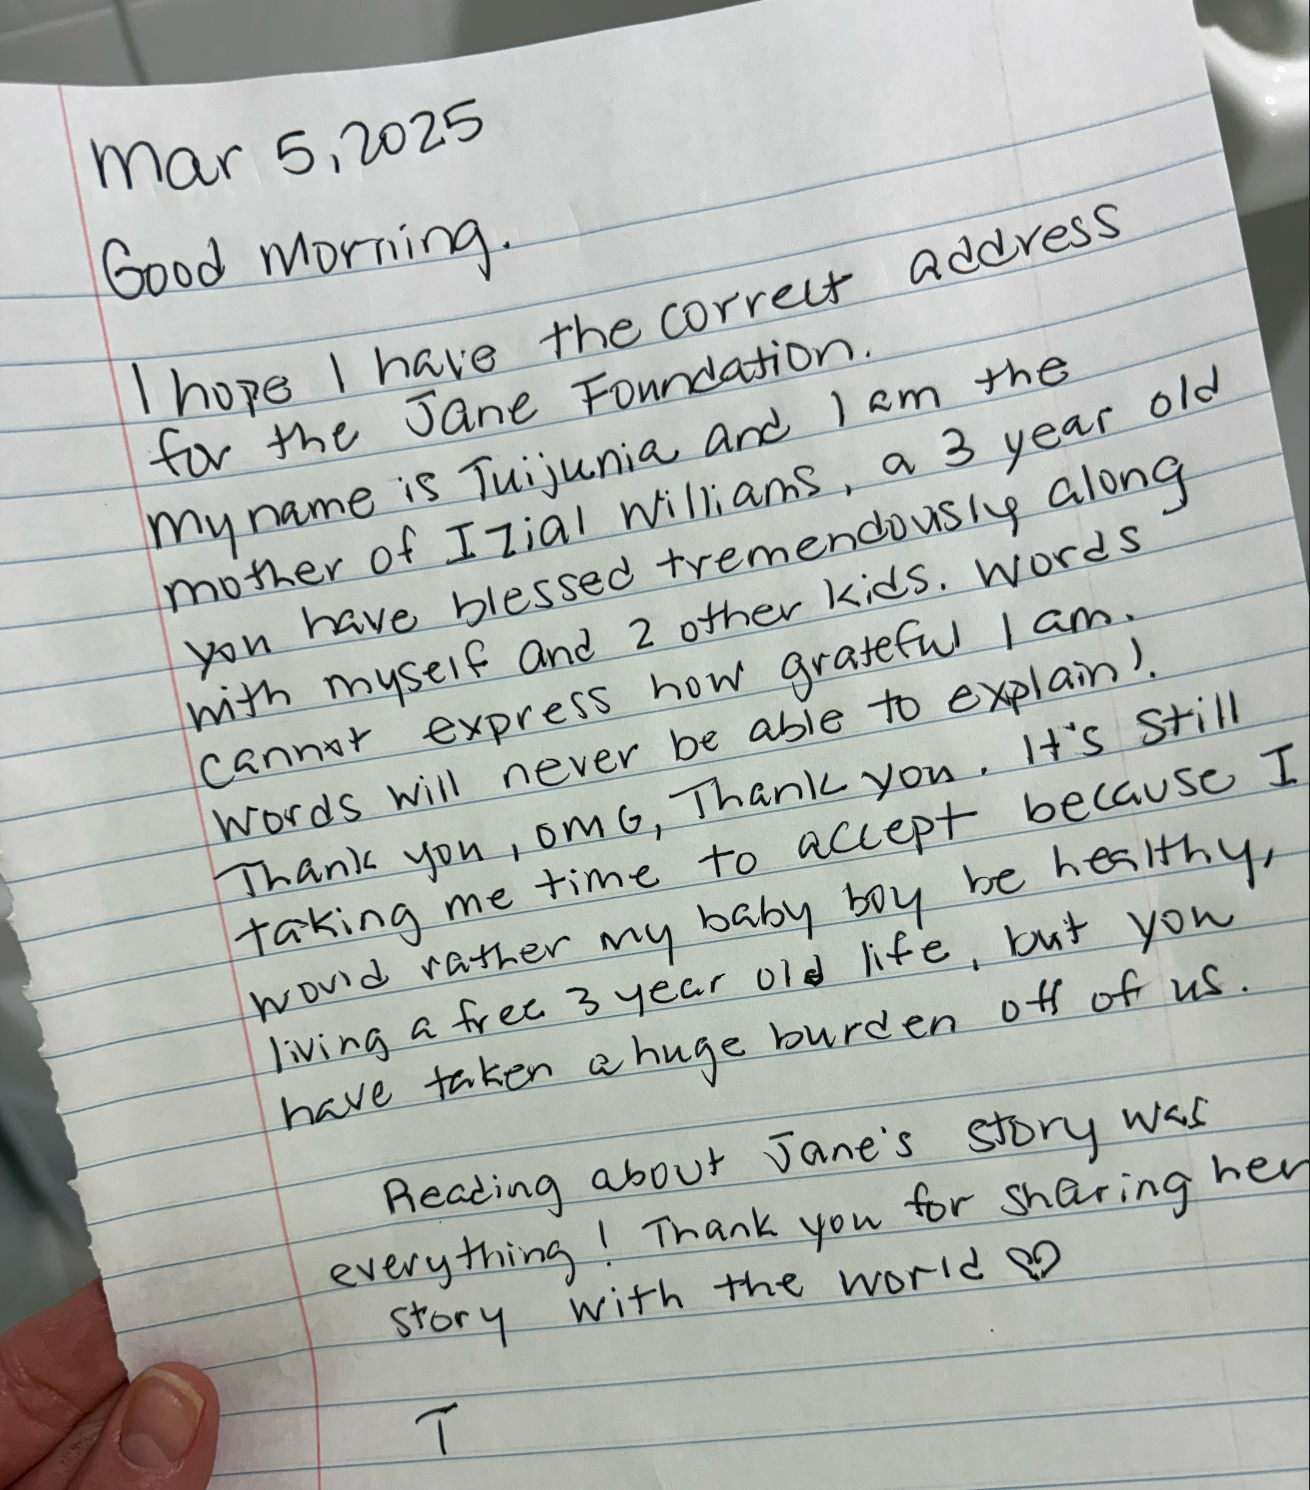 Mar 5, 2025
Good Morning.
I hope I have the correct address
for the Jane Foundation.
My name is Tuijunia and I am the
mother of Izial Williams, a 3 year old
you have blessed tremendously along
with myself and 2 other kids. Words
cannot express how grateful I am.
Words will never be able to explain!.
Thank you, OMG, Thank you. It's still
taking me time to accept because I
would rather my baby boy be healthy,
living a free 3 year old life, but you
have taken a huge burden off of us.
Reading about Jane's story was
everything! Thank you for sharing her
story with the world ♡
T